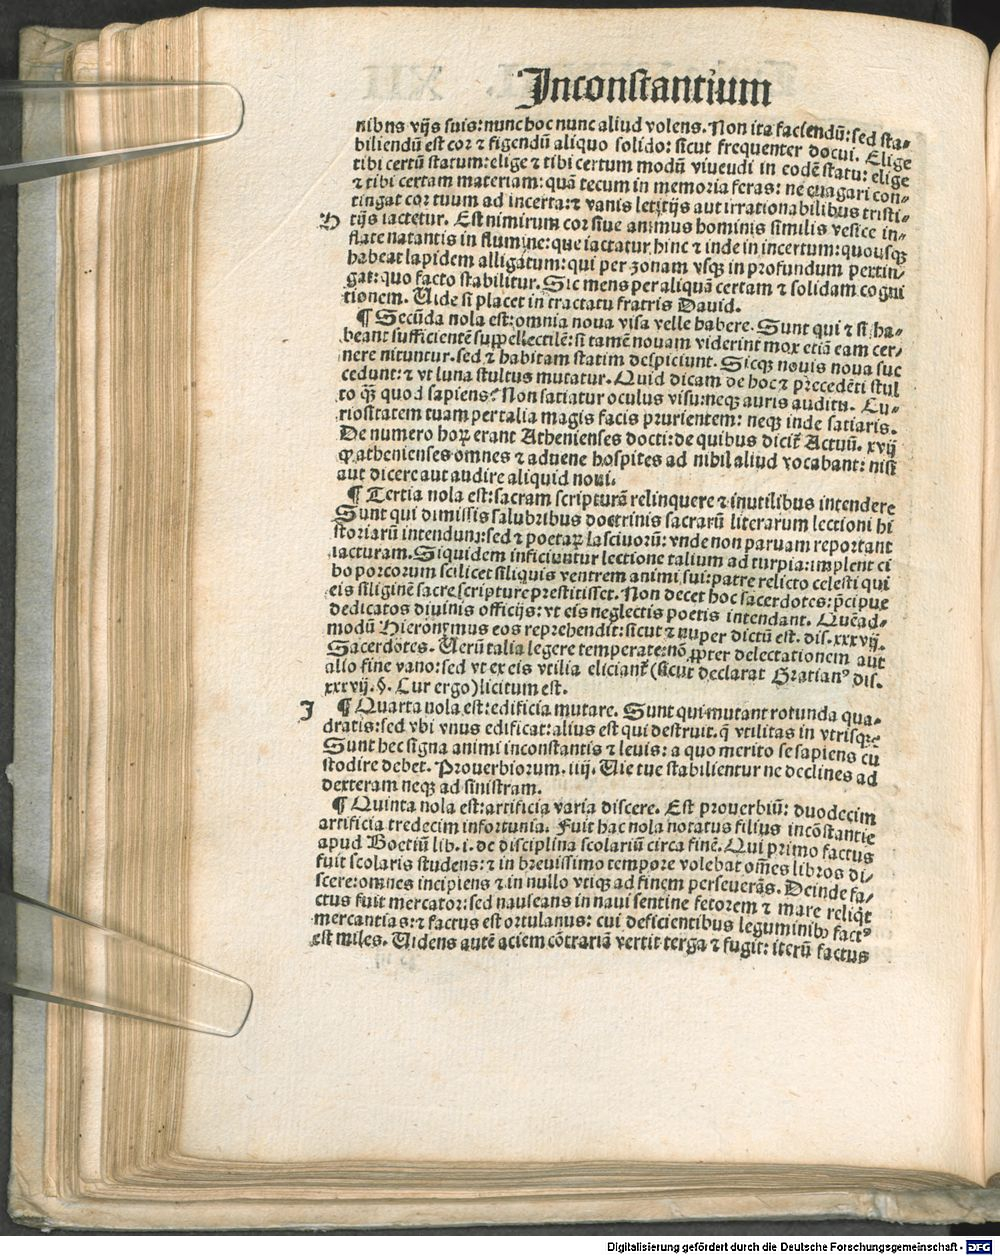 Inconstantium
nibus vijs suis: nunc hoc nunc aliud volens. Non ita faciendū: sed sta-
biliendū est cor ⁊ figendū aliquo solido: sicut frequenter docui. Elige
tibi certū statum: elige ⁊ tibi certum modū viuendi in eodē statu: elige
⁊ tibi certam materiam: quā tecum in memoria feras: ne euagari con-
tingat cor tuum ad incerta: ⁊ vanis letitijs aut irrationabilibus tristi-
H tijs iactetur. Est nimirum cor siue animus hominis similis vesice in-
flate natantis in flumine: que iactatur hinc ⁊ inde in incertum: quousqꝫ
habeat lapidem alligatum: qui per zonam vsqꝫ in profundum pertin-
gat: quo facto stabilitur. Sic mens per aliquā certam ⁊ solidam cogni
tionem. Uide si placet in tractatu fratris Dauid.
¶ Secūda nola est: omnia noua visa velle habere. Sunt qui ⁊ si ha-
beant sufficientē suppellectilē: si tamē nouam viderint mox etiā eam cer-
nere nituntur. sed ⁊ habitam statim despiciunt. Sicqꝫ nouis noua suc
cedunt: ⁊ vt luna stultus mutatur. Quid dicam de hoc ⁊ precedēti stul
to qꝫ̄ quod sapiens? Non satiatur oculus visu: neqꝫ auris auditu. Cu-
riositatem tuam per talia magis facis prurientem: neqꝫ inde satiaris.
De numero hoꝝ erant Athenienses docti: de quibus dicit̄ Actuū. xvij
ꝙ athenienses omnes ⁊ aduene hospites ad nihil aliud vocabant: nisi
aut dicere aut audire aliquid noui.
¶ Tertia nola est: sacram scripturā relinquere ⁊ inutilibus intendere
Sunt qui dimissis salubribus doctrinis sacrarū literarum lectioni hi
storiarū intendunt: sed ⁊ poetaꝝ lasciuorū: vnde non paruam reportant
iacturam. Siquidem inficiuntur lectione talium ad turpia: implent ci
bo porcorum scilicet siliquis ventrem animi sui: patre relicto celesti qui
eis siliginē sacre scripture prestitisset. Non decet hoc sacerdotes: p̄cipue
dedicatos diuinis officijs: vt eis neglectis poetis intendant. Quēad-
modū Hieronymus eos reprehendit: sicut ⁊ nuper dictū est. dis. xxxvij.
Sacerdotes. Uerū talia legere temperate: nō ꝓpter delectationem aut
alio fine vano: sed vt ex eis vtilia eliciant̄ (sicut declarat Gratianꝰ dis.
xxxvij. §. Cur ergo) licitum est.
I ¶ Quarta nola est: edificia mutare. Sunt qui mutant rotunda qua-
dratis: sed vbi vnus edificat: alius est qui destruit. q̄ vtilitas in vtrisqꝫ
Sunt hec signa animi inconstantis ⁊ leuis: a quo merito se sapiens cu
stodire debet. Prouerbiorum. iiij. Uie tue stabilientur ne declines ad
dexteram neqꝫ ad sinistram.
¶ Quinta nola est: artificia varia discere. Est prouerbiū: duodecim
artificia tredecim infortunia. Fuit hac nola notatus filius incōstantie
apud Boetiū lib. i. de disciplina scolariū circa finē. Qui primo factus
fuit scolaris studens: ⁊ in breuissimo tempore volebat oēs libros di-
scere: omnes incipiens ⁊ in nullo vtiqꝫ ad finem perseuerās. Deinde fa-
ctus fuit mercator: sed nauseans in naui sentine fetorem ⁊ mare reliqt
mercantias: ⁊ factus est ortulanus: cui deficientibus leguminibꝫ factꝰ
est miles. Uidens autē aciem cōtrariā vertit terga ⁊ fugit: iterū factus
Digitalisierung gefördert durch die Deutsche Forschungsgemeinschaft - DFG